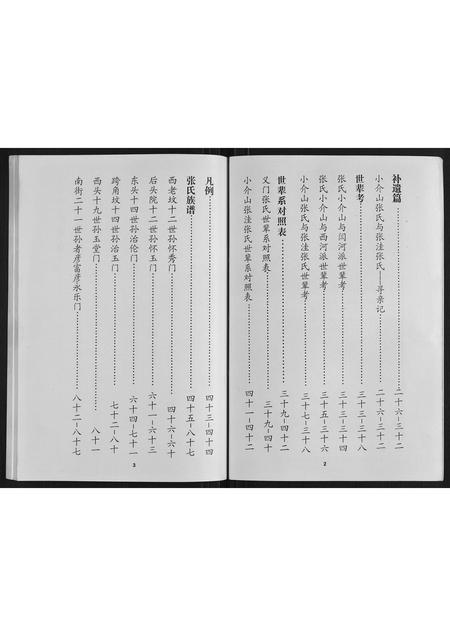 补遗篇……二十六–三十二
小介山张氏与张洼张氏——寻亲记……二十六–三十二
世辈考……三十三–三十八
张氏小介山与闫河派世辈考……三十三–三十四
张氏小介山与西河派世辈考……三十五–三十六
小介山张氏与张洼张氏世辈考……三十七–三十八
世辈系对照表……三十九–四十二
义门张氏世辈系对照表……三十九–四十
小介山张洼张氏世辈系对照表……四十一–四十二
2
凡例……四十三–四十四
张氏族谱……四十五–八十七
西老坟十二世孙怀秀门……四十六–六十
后头院十二世孙玉门……六十一–六十三
东头十四世孙治伦门……六十四–七十一
跨角坟十四世孙治玉门……七十二–八十
西头十九世孙玉堂门……八十一
南街二十一世孙者彦富彦永乐门……八十二–八十七
3